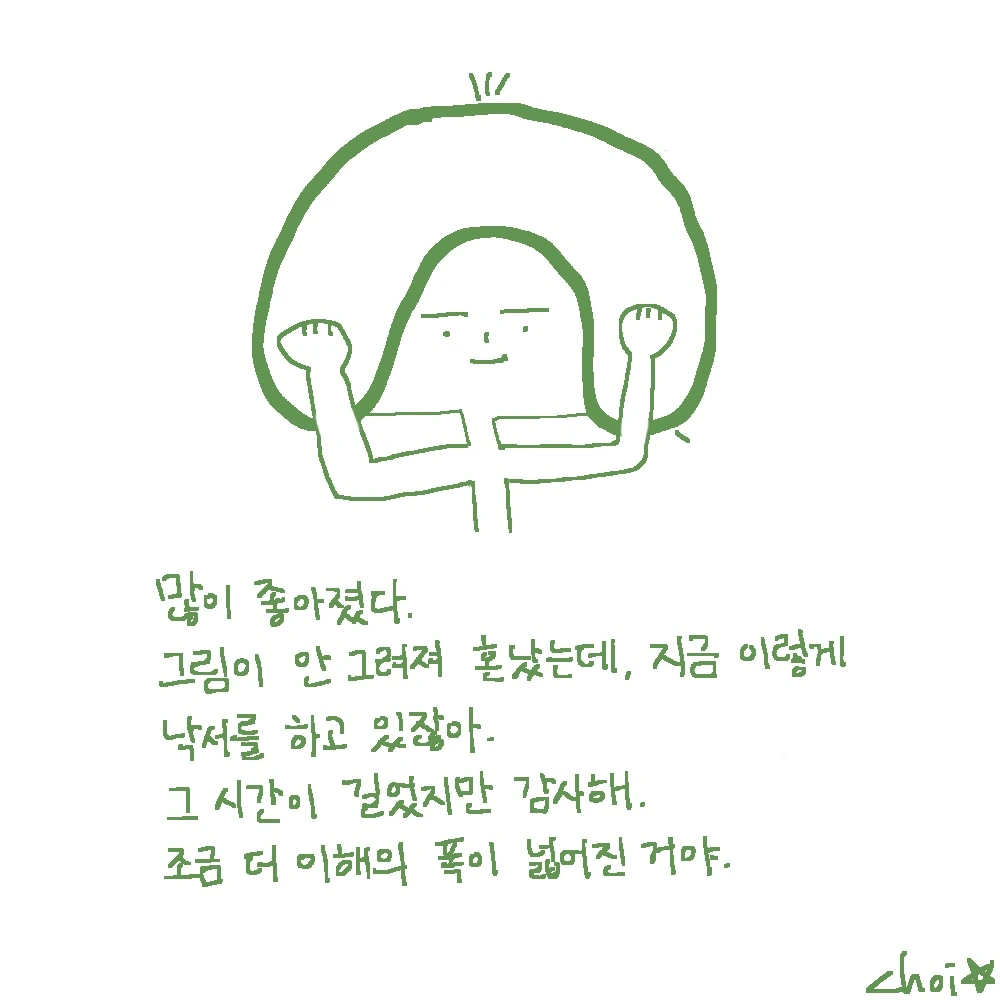 많이 좋아졌다.
그림이 안 그려져 혼났는데, 지금 이렇게
낙서를 하고 있잖아.
그 시간이 길었지만 감사해.
조금 더 이해의 폭이 넓어진 거야.
choi